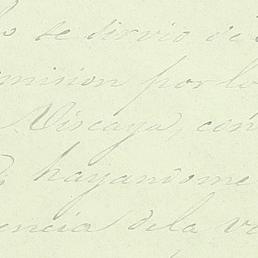 se sirvio de
mision por lo
Viscaya, con
hayandome
encia dela v